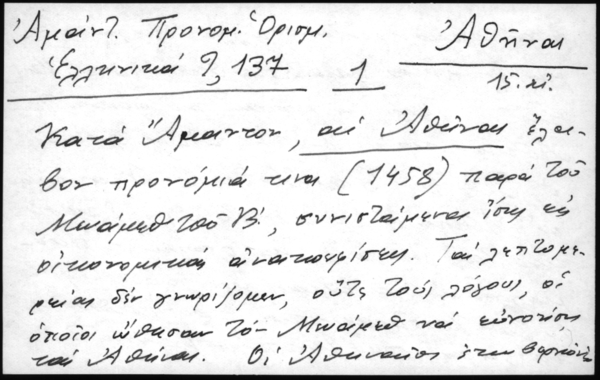 Ἀμάντ. Προνομ. Ὁρισμ.
Ἑλληνικά 9, 137
1
Ἀθῆναι
15. xi.
Κατά Ἄμαντον, αἱ Ἀθῆναι ἔλα-
βον προνόμιά τινα (1458) παρά τοῦ
Μωάμεθ τοῦ Β', συνιστάμενα ἴσως εἰς
οἰκονομικάς ἀνακουφίσεις. Τάς λεπτομε-
ρείας δέν γνωρίζομεν, οὔτε τούς λόγους, οἱ
ὁποῖοι ὤθησαν τόν Μωάμεθ νά εὐνοήσῃ
τάς Ἀθήνας. Οἱ Ἀθηναῖοι